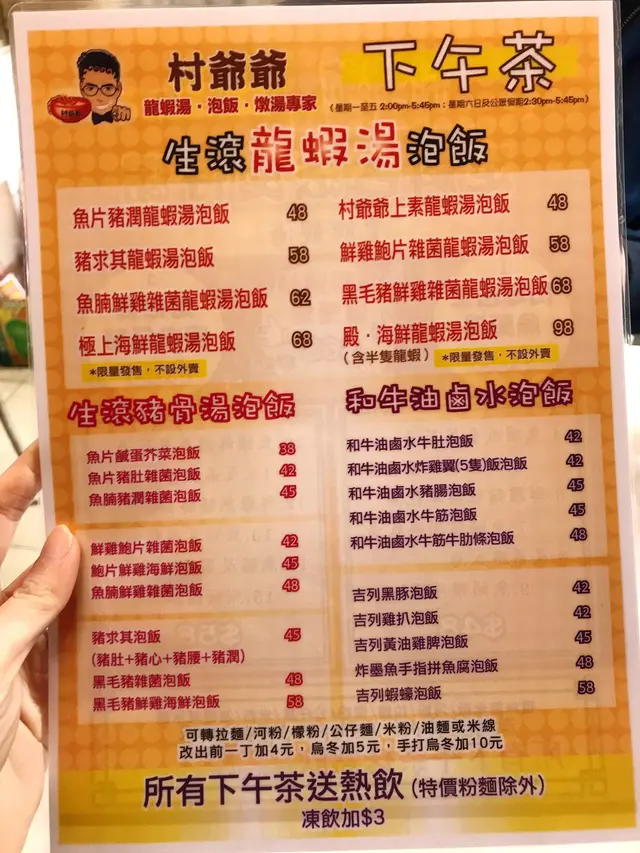 村爺爺
龍蝦湯·泡飯·燉湯專家
下午茶
(星期一至五 2:00pm-5:45pm；星期六日及公眾假期2:30pm-5:45pm)
生滾龍蝦湯泡飯
魚片豬潤龍蝦湯泡飯 48
豬求其龍蝦湯泡飯 58
魚腩鮮雞雜菌龍蝦湯泡飯 62
極上海鮮龍蝦湯泡飯 68
*限量發售，不設外賣
村爺爺上素龍蝦湯泡飯 48
鮮雞鮑片雜菌龍蝦湯泡飯 58
黑毛豬鮮雞雜菌龍蝦湯泡飯 68
殿·海鮮龍蝦湯泡飯 98
(含半隻龍蝦) *限量發售，不設外賣
生滾豬骨湯泡飯
魚片鹹蛋芥菜泡飯 38
魚片豬肚雜菌泡飯 42
魚腩豬潤雜菌泡飯 45
鮮雞鮑片雜菌泡飯 42
鮑片鮮雞海鮮泡飯 45
魚腩鮮雞雜菌泡飯 48
豬求其泡飯 45
(豬肚+豬心+豬腰+豬潤)
黑毛豬雜菌泡飯 48
黑毛豬鮮雞海鮮泡飯 58
和牛油鹵水泡飯
和牛油鹵水牛肚泡飯 42
和牛油鹵水炸雞翼(5隻)飯泡飯 42
和牛油鹵水豬腸泡飯 45
和牛油鹵水牛筋泡飯 45
和牛油鹵水牛筋牛肋條泡飯 48
吉列黑豚泡飯 42
吉列雞扒泡飯 42
吉列黃油雞脾泡飯 45
炸墨魚手指拼魚腐泡飯 48
吉列蝦蠔泡飯 58
可轉拉麵/河粉/檬粉/公仔麵/米粉/油麵或米線
改出前一丁加4元，烏冬加5元，手打烏冬加10元
所有下午茶送熱飲(特價粉麵除外)
凍飲加$3